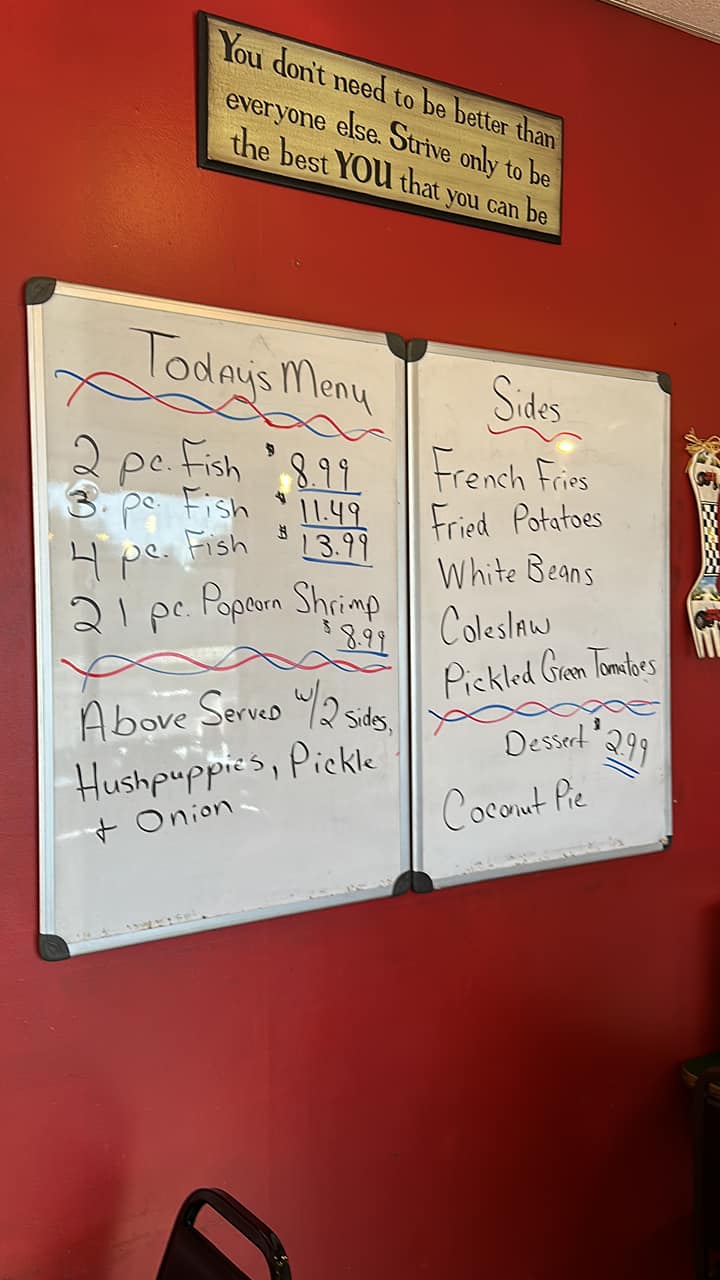 You don't need to be better than
everyone else. Strive only to be
the best YOU that you can be
Today's Menu
2 pc. Fish $8.99
3. pc. Fish $11.49
4 pc. Fish $13.99
21 pc. Popcorn Shrimp
$8.99
Above Served w/2 sides,
Hushpuppies, Pickle
+ Onion
Sides
French Fries
Fried Potatoes
White Beans
Coleslaw
Pickled Green Tomatoes
Dessert $2.99
Coconut Pie